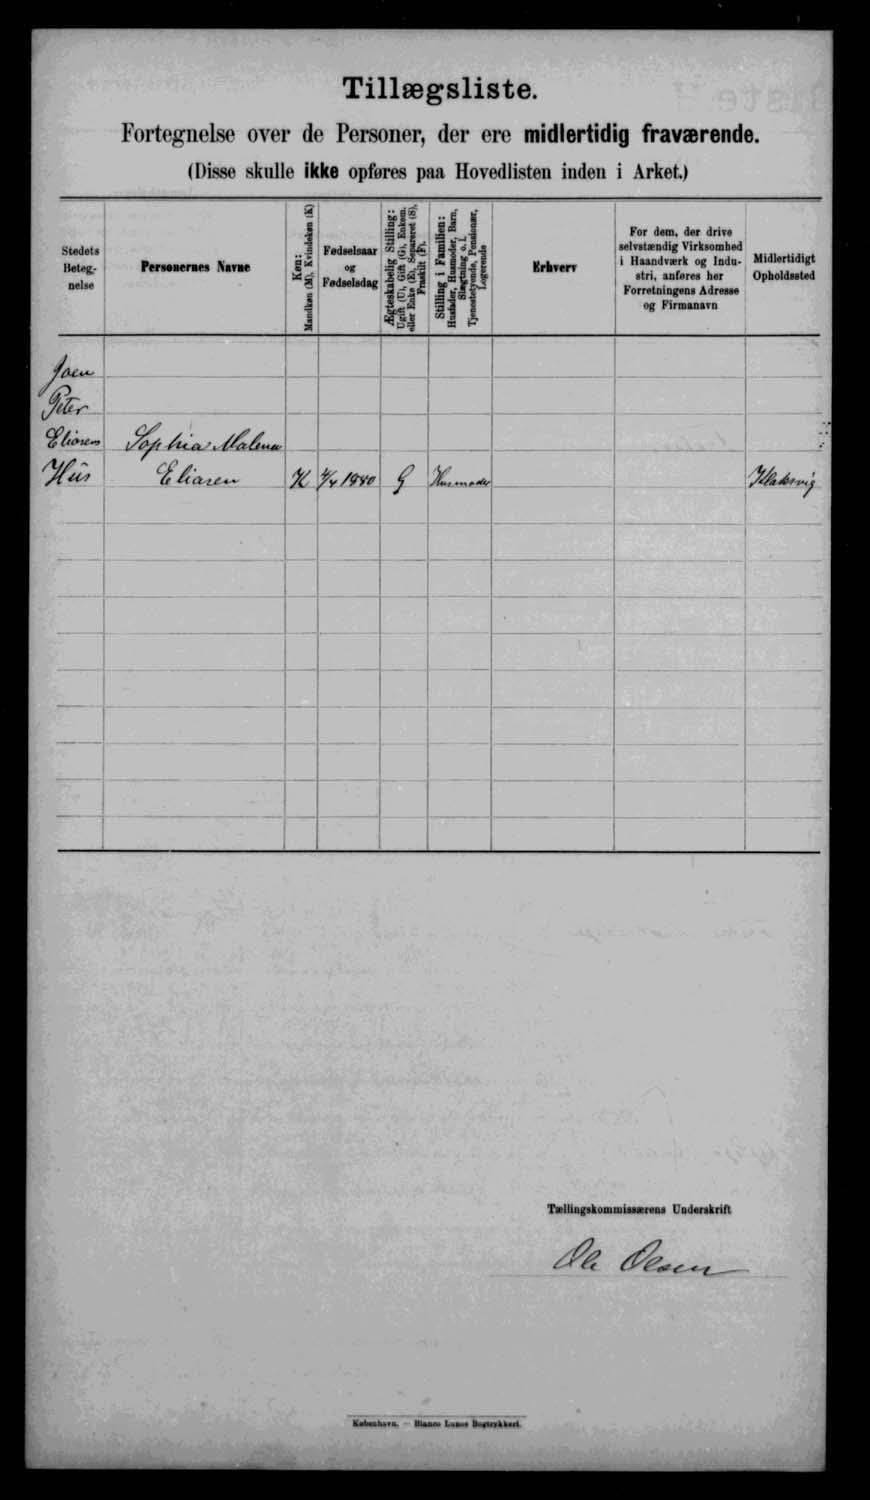 Tillægsliste.
Fortegnelse over de Personer, der ere midlertidig fraværende.
(Disse skulle ikke opføres paa Hovedlisten inden i Arket.)
Stedets
Beteg-
nelse
Personernes Navne
Køn:
Mandkøn (M), Kvindekøn (K)
Fødselsaar
og
Fødselsdag
Ægteskabelig Stilling:
Ugift (U), Gift (G), Enkem.
eller Enke (E), Separeret (S),
Fraskilt (F).
Stilling i Familien:
Husfader, Husmoder, Barn,
Slægtning o. l.
Tjenestetyende, Pensionær,
Logerende
Erhverv
For dem, der drive
selvstændig Virksomhed
i Haandværk og Indu-
stri, anføres her
Forretningens Adresse
og Firmanavn
Midlertidigt
Opholdssted
Joen
Peter
Eliasens Sophia Malena
Hus Eliasen K 4/4 1880 G Husmoder Klaksvig
Tællingskommissærens Underskrift
Ole Olsen
København. — Bianco Lunos Bogtrykkeri.